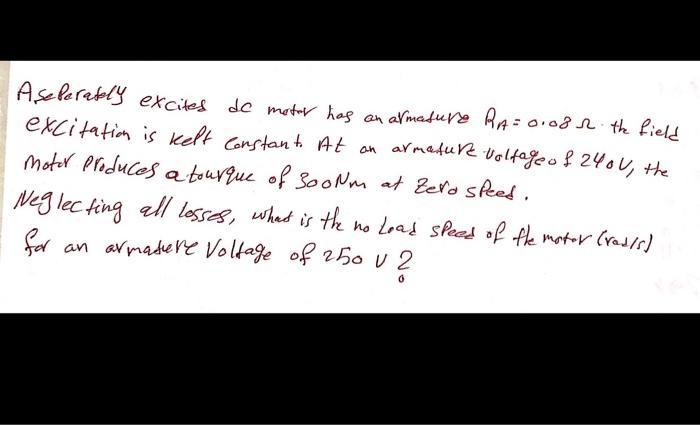 Aseperately excited dc motor has an armature RA = 0.08 Ω. the field
excitation is kept constant. At an armature voltage of 240V, the
motor produces a tourque of 300Nm at Zero speed.
Neglecting all losses, what is the no load speed of the motor (rad/s)
for an armature Voltage of 250 V ?